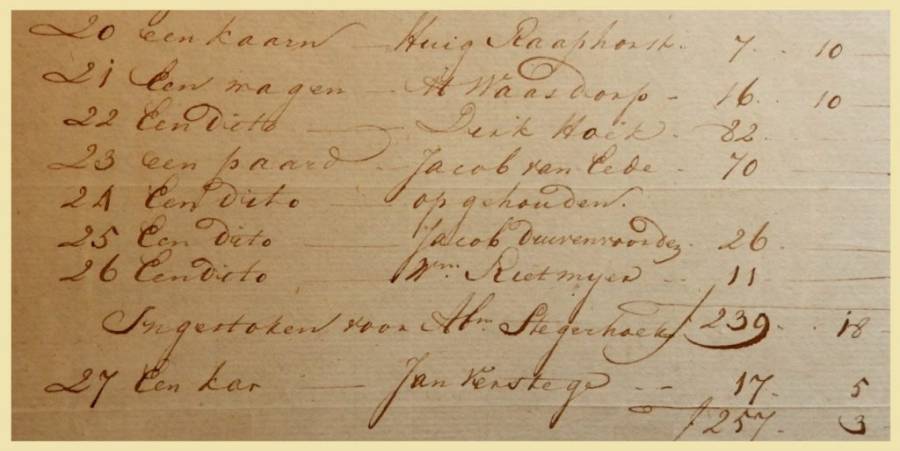 20 een kaarn — Huig Raaphorst. 7. . 10
21 Een wagen — At Waasdorp - 16. 10
22 Een dito — Dirk Hoek. 82.
23 een paard — Jacob van Eede - 70
24 Een dito — op gehouden.
25 Een dito — Jacob Duivenvoorde. 26.
26 Een dito — Wm. Rietmyer - - 11
Ingestoken voor Abm. Stegerhoek ƒ 239. . 18
27 Een kar — Jan Verstege - - 17. 5
ƒ 257. 3